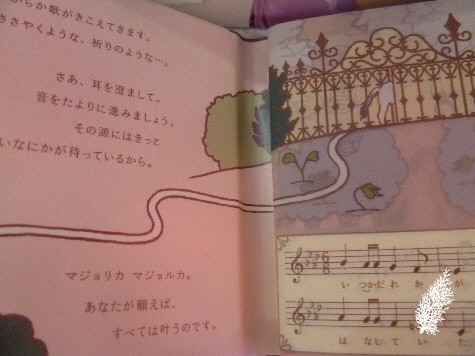 からか歌がきこえてきます。
ささやくような、祈りのような…。
さあ、耳を澄まして。
音をたよりに進みましょう。
その源にはきっと
いなにかが待っているから。
マジョリカ マジョルカ。
あなたが願えば、
すべては叶うのです。
い つかだ れ か が
は なし て い た